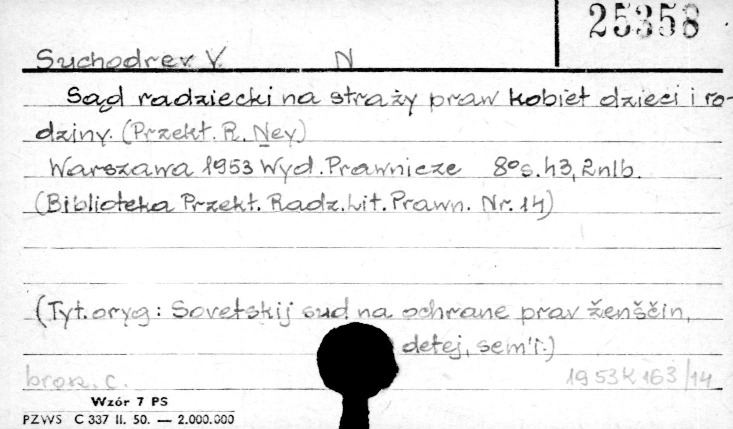 25358
Suchodrev V. N
Sąd radziecki na straży praw kobiet dzieci i ro-
dziny. (Przekł. R. Ney)
Warszawa 1953 Wyd. Prawnicze 8° s. 43, 2 nlb.
(Biblioteka Przekł. Radz. Lit. Prawn. Nr. 14)
(Tyt. oryg: Sovetskij sud na ochrane prav ženščin,
detej, sem'i.)
brosz. c. 1953 K 163/14
Wzór 7 PS
PZWS C 337 II. 50. — 2.000.000